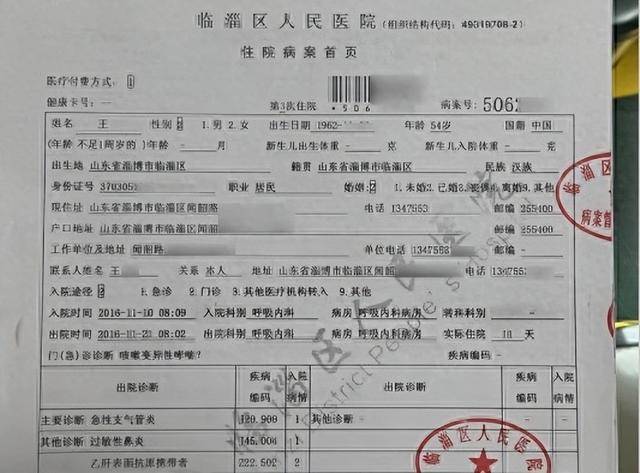 临淄区人民医院(组织结构代码: 49319708-2)
住院病案首页
医疗付费方式: 1
健康卡号: — 第3次住院 *506 病案号: 506
姓名 王 性别 1.男 2.女 出生日期 1962 年龄 54岁 国籍 中国
(年龄不足1周岁的)年龄 - 月 新生儿出生体重 - 克 新生儿入院体重 - 克
出生地 山东省淄博市临淄区 籍贯 山东省淄博市临淄区 民族 汉族
身份证号 370305 职业 居民 婚姻 2 1.未婚2.已婚3.丧偶4.离婚9.其他
现住址 山东省淄博市临淄区闻韶路 电话 1347553 邮编 255400
户口地址 山东省淄博市临淄区闻韶 邮编 255400
工作单位及地址 闻韶路 单位电话 1347553 邮编
联系人姓名 王 关系 本人 地址 山东省淄博市临淄区闻 电话 134755
入院途径 2 1.急诊 2.门诊 3.其他医疗机构转入 9.其他
入院时间 2016-11-10 08:09 入院科别 呼吸内科 病房 呼吸内科病房 转科科别
出院时间 2016-11-21 08:02 出院科别 呼吸内科 病房 呼吸内科病房 实际住院 天
门(急)诊诊断 咳嗽变异性哮喘? 疾病编码 -
出院诊断 疾病编码 入院病情 出院诊断 疾病编码 入院病情
主要诊断 急性支气管炎 J20.900 1 其他诊断 -
其他诊断 过敏性鼻炎 J45.004 1
乙肝表面抗原携带者 Z22.502 2
临淄区人民医院